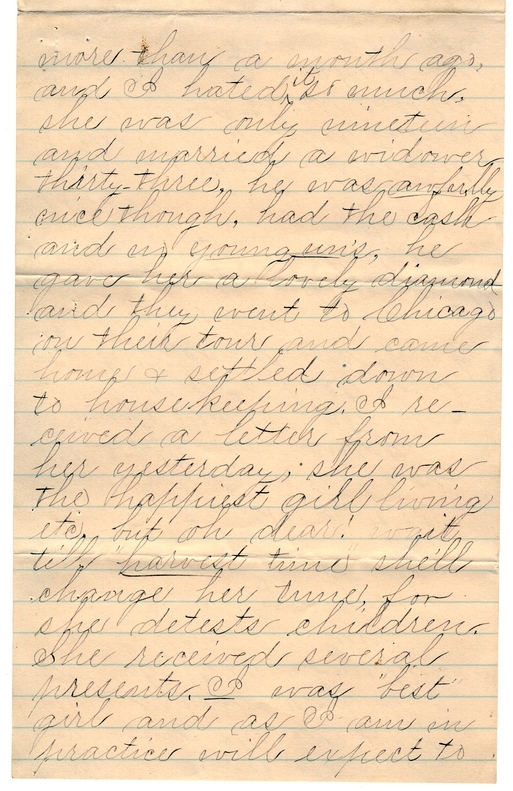 more than a month ago,
and I hated it so much,
she was only nineteen
and married a widower
thirty-three, he was awfully
nice though, had the cash
and no young uns, he
gave her a lovely diamond
and they went to Chicago
on their tour and came
home & settled down
to housekeeping. I re-
ceived a letter from
her yesterday, she was
the happiest girl living
etc, but oh dear! wait
till "harvest time" she'll
change her tune, for
she detests children.
She received several
presents. I was "best"
girl and as I am in
practice will expect to